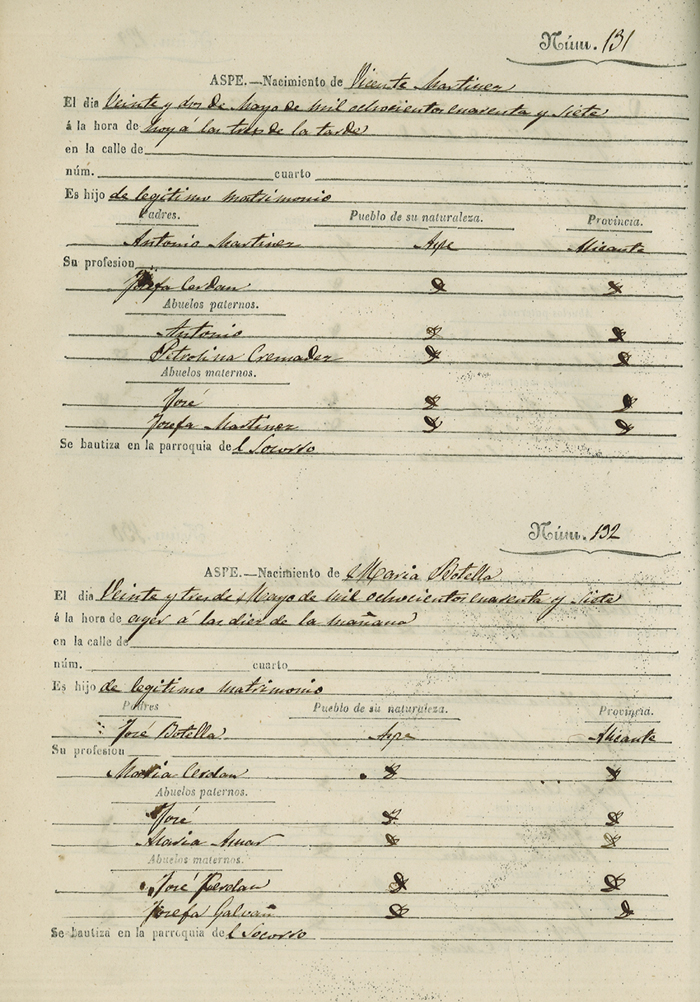 Núm. 131
ASPE.—Nacimiento de Vicente Martinez
El dia Veinte y dos de Mayo de mil ochocientos cuarenta y siete
á la hora de hoy á las tres de la tarde
en la calle de
núm. cuarto
Es hijo de legitimo matrimonio
Padres. Pueblo de su naturaleza. Provincia.
Antonio Martinez Aspe Alicante
Su profesion
Josefa Cerdan
Abuelos paternos.
Antonio
Petrolina Cremadez
Abuelos maternos.
José
Josefa Martinez
Se bautiza en la parroquia de l Socorro
Núm. 132
ASPE.—Nacimiento de Maria Botella
El dia Veinte y tres de Mayo de mil ochocientos cuarenta y siete
á la hora de ayer á las diez de la mañana
en la calle de
núm. cuarto
Es hijo de legitimo matrimonio
Padres Pueblo de su naturaleza. Provincia.
José Botella Aspe Alicante
Su profesion
Maria Cerdan
Abuelos paternos.
José
Maria
Abuelos maternos.
José Cerdan
Josefa Galvañ
Se bautiza en la parroquia de l Socorro